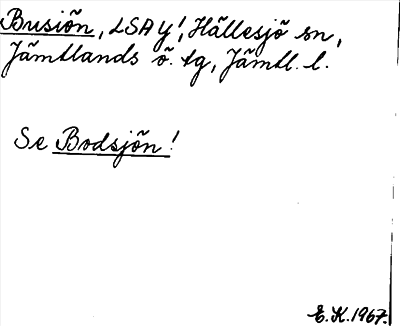 Busiön, LSA y!, Hällesjö sn,
Jämtlands ö. tg, Jämtl. l.
Se Bodsjön!
E. K. 1967.